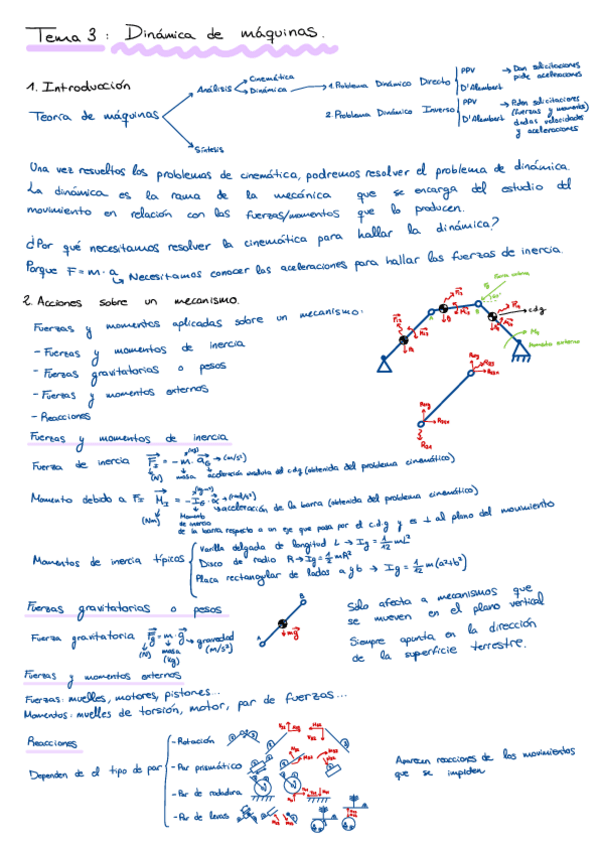 Tema 3: Dinámica de máquinas.
1. Introducción
Teoría de máquinas
Análisis
Cinemática
Dinámica
1. Problema Dinámico Directo
PPV
D'Alembert
→ Dan solicitaciones
pide aceleraciones
2. Problema Dinámico Inverso
PPV
D'Alembert
→ Piden solicitaciones
(fuerzas y momentos)
dadas velocidades
y aceleraciones
Síntesis
Una vez resueltos los problemas de cinemática, podremos resolver el problema de dinámica.
La dinámica es la rama de la mecánica que se encarga del estudio del
movimiento en relación con las fuerzas/momentos que lo producen.
¿Por qué necesitamos resolver la cinemática para hallar la dinámica?
Porque F = m · a
Necesitamos conocer las aceleraciones para hallar las fuerzas de inercia.
2. Acciones sobre un mecanismo.
Fuerzas y momentos aplicadas sobre un mecanismo:
- Fuerzas y momentos de inercia
- Fuerzas gravitatorias o pesos
- Fuerzas y momentos externos
- Reacciones
Fuerza externa
cdg
Momento externo
Fuerzas y momentos de inercia
Fuerza de inercia F = -m · a → (m/s²)
(N)
masa
aceleración absoluta del cdg (obtenida del problema cinemático)
Momento debido a
(Nm)
Momento
de inercia
de la barra respecto a un eje que pasa por el c.d.g y es ⊥ al plano del movimiento
aceleración de la barra (obtenida del problema cinemático)
Momentos de inercia típicos
Varilla delgada de longitud L → Ig = 1/12 mL²
Disco de radio R → Ig = 1/2 mR²
Placa rectangular de lados a y b → Ig = 1/12 m(a²+b²)
Fuerzas gravitatorias o pesos
Fuerza gravitatoria Fg = m · g → gravedad
(m/s²)
(N)
masa
(kg)
B
A
mg
Sólo afecta a mecanismos que
se mueven en el plano vertical
Siempre apunta en la dirección
de la superficie terrestre.
Fuerzas y momentos externos
Fuerzas: muelles, motores, pistones...
Momentos: muelles de torsión, motor, par de fuerzas...
Reacciones
Dependen de el tipo de par
- Rotación
- Par prismático
- Par de rodadura
- Par de levas
Aparecen reacciones de los movimientos
que se impiden